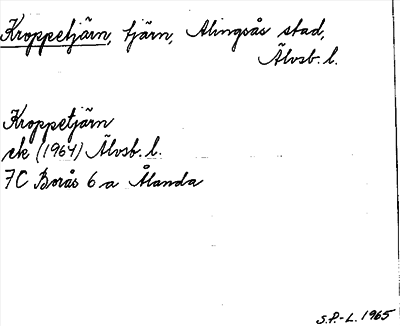 Kroppetjärn, tjärn, Alingsås stad,
Älvsb. l.
Kroppetjärn
ek (1964) Älvsb. l.
7C Borås 6 a Ålanda
S.P.-L. 1965